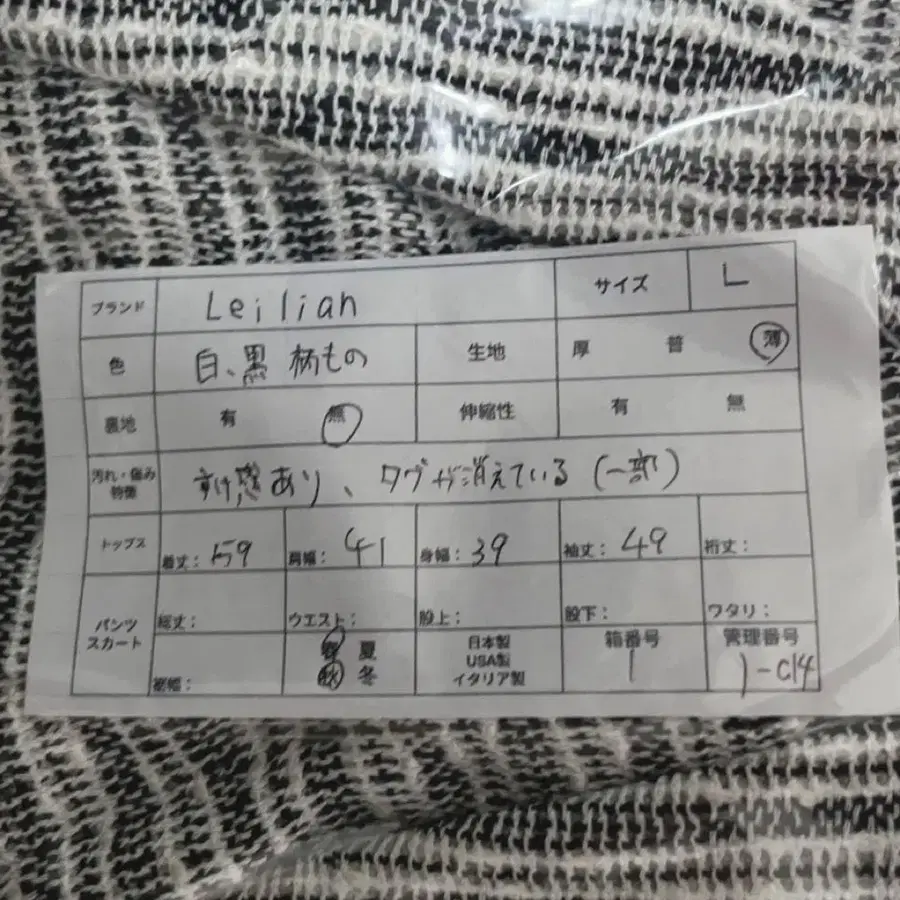 ブランド Leilian サイズ L
色 白、黒 柄もの 生地 厚 普 薄
裏地 有 無 伸縮性 有 無
汚れ・傷み
特徴 すけ感あり、タグが消えている(一部)
トップス 着丈: 59 肩幅: 41 身幅: 39 袖丈: 49 裄丈:
パンツ
スカート 総丈: ウエスト: 股上: 股下: ワタリ:
裾幅: 春 夏
秋 冬
日本製
USA製
イタリア製
箱番号
1
管理番号
1-C14